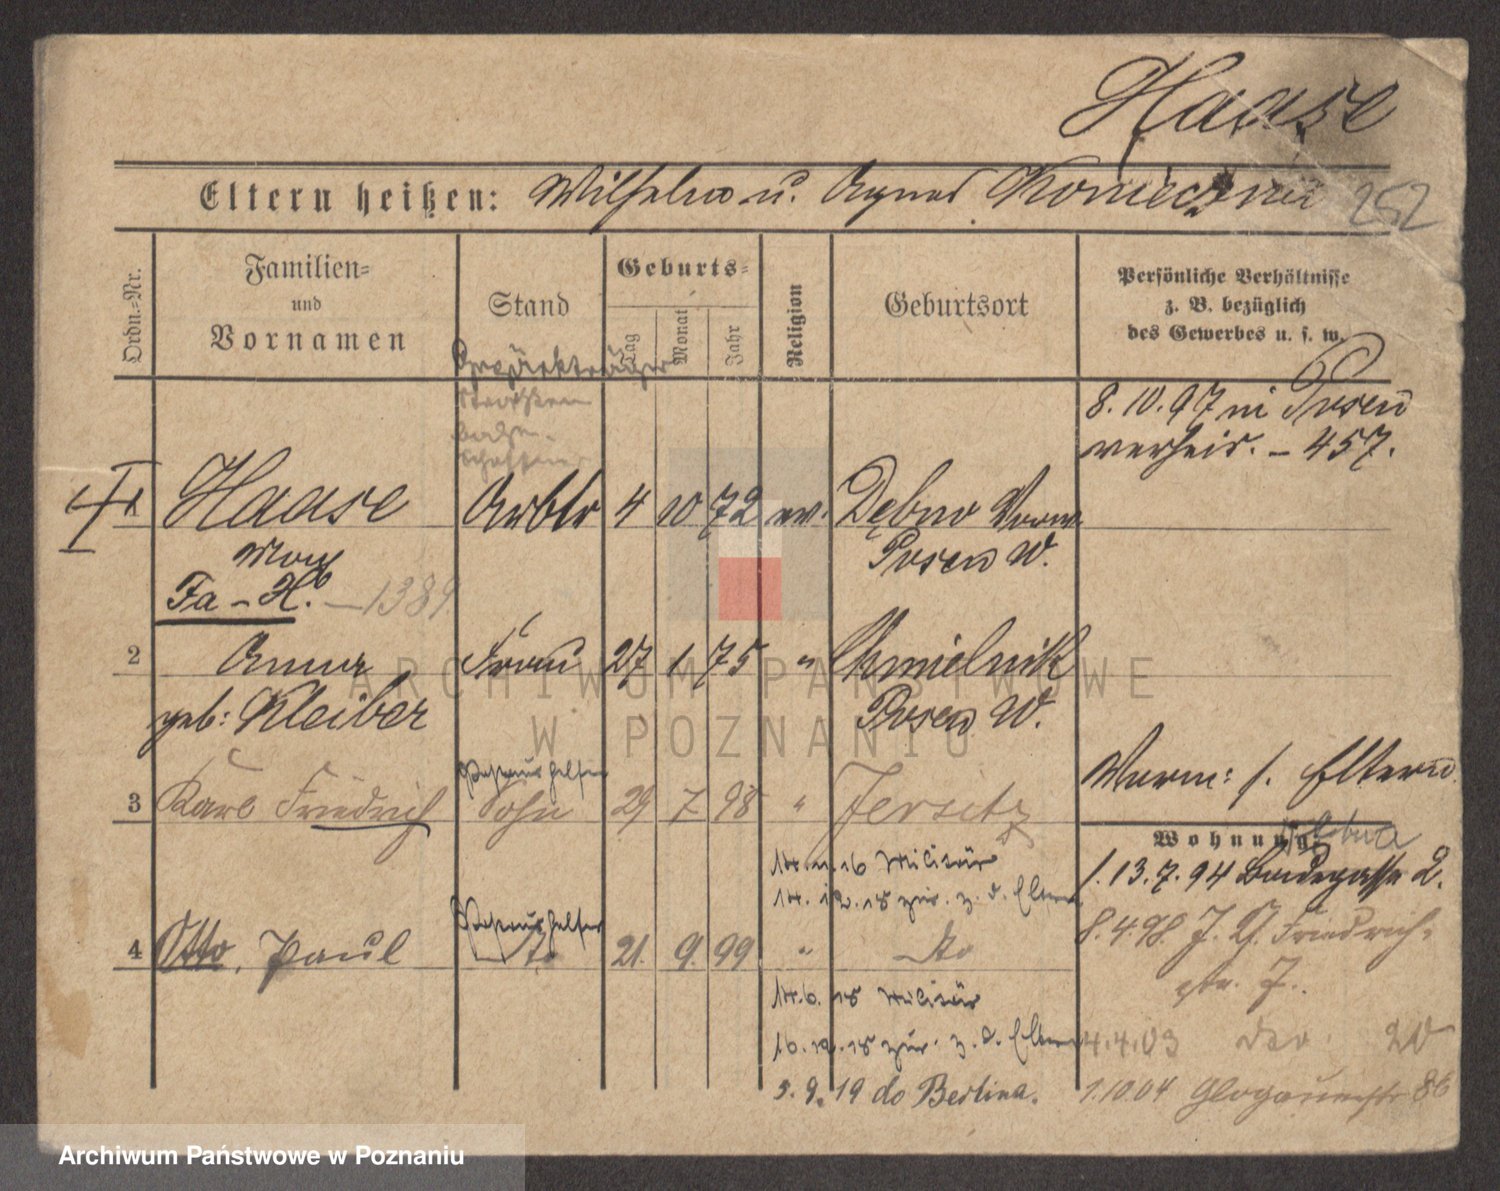 Haase
Eltern heißen: Wilhelm u. Agnes Konieczna 252
Ordn.-Nr.
Familien-
und
Vornamen
Stand
Geburts-
Tag
Monat
Jahr
Religion
Geburtsort
Persönliche Verhältnisse
z. B. bezüglich
des Gewerbes u. s. w.
Gepäckträger
8.10.97 in Posen
verheir. – 457.
Haase Arbtr 4 10 72 ev. Dębno
Max Posen W.
Fa – H. – 1389
2 Anna Frau 27 1 75 " Chmielnik
geb: Kleiber Posen W.
Postaushelfer
3 Karl Friedrich Sohn 29 7 98 " Jersitz
Verm: s. Eltern
Wohnung
14.11.16 Militär
14.12.18 zur. z. d. Eltern
1.13.7.94 Badegasse 2.
Postaushelfer
4 Otto, Paul do 21. 9. 99 " do
8.4.98. J. Friedrich-
str. 7.
14.6.18 Militär
16.12.18 zur. z. d. Eltern
4.4.03 20
3.9.19 do Berlina.
1.10.04 Glogauerstr 86
ARCHIWUM PAŃSTWOWE
W POZNANIU
Archiwum Państwowe w Poznaniu